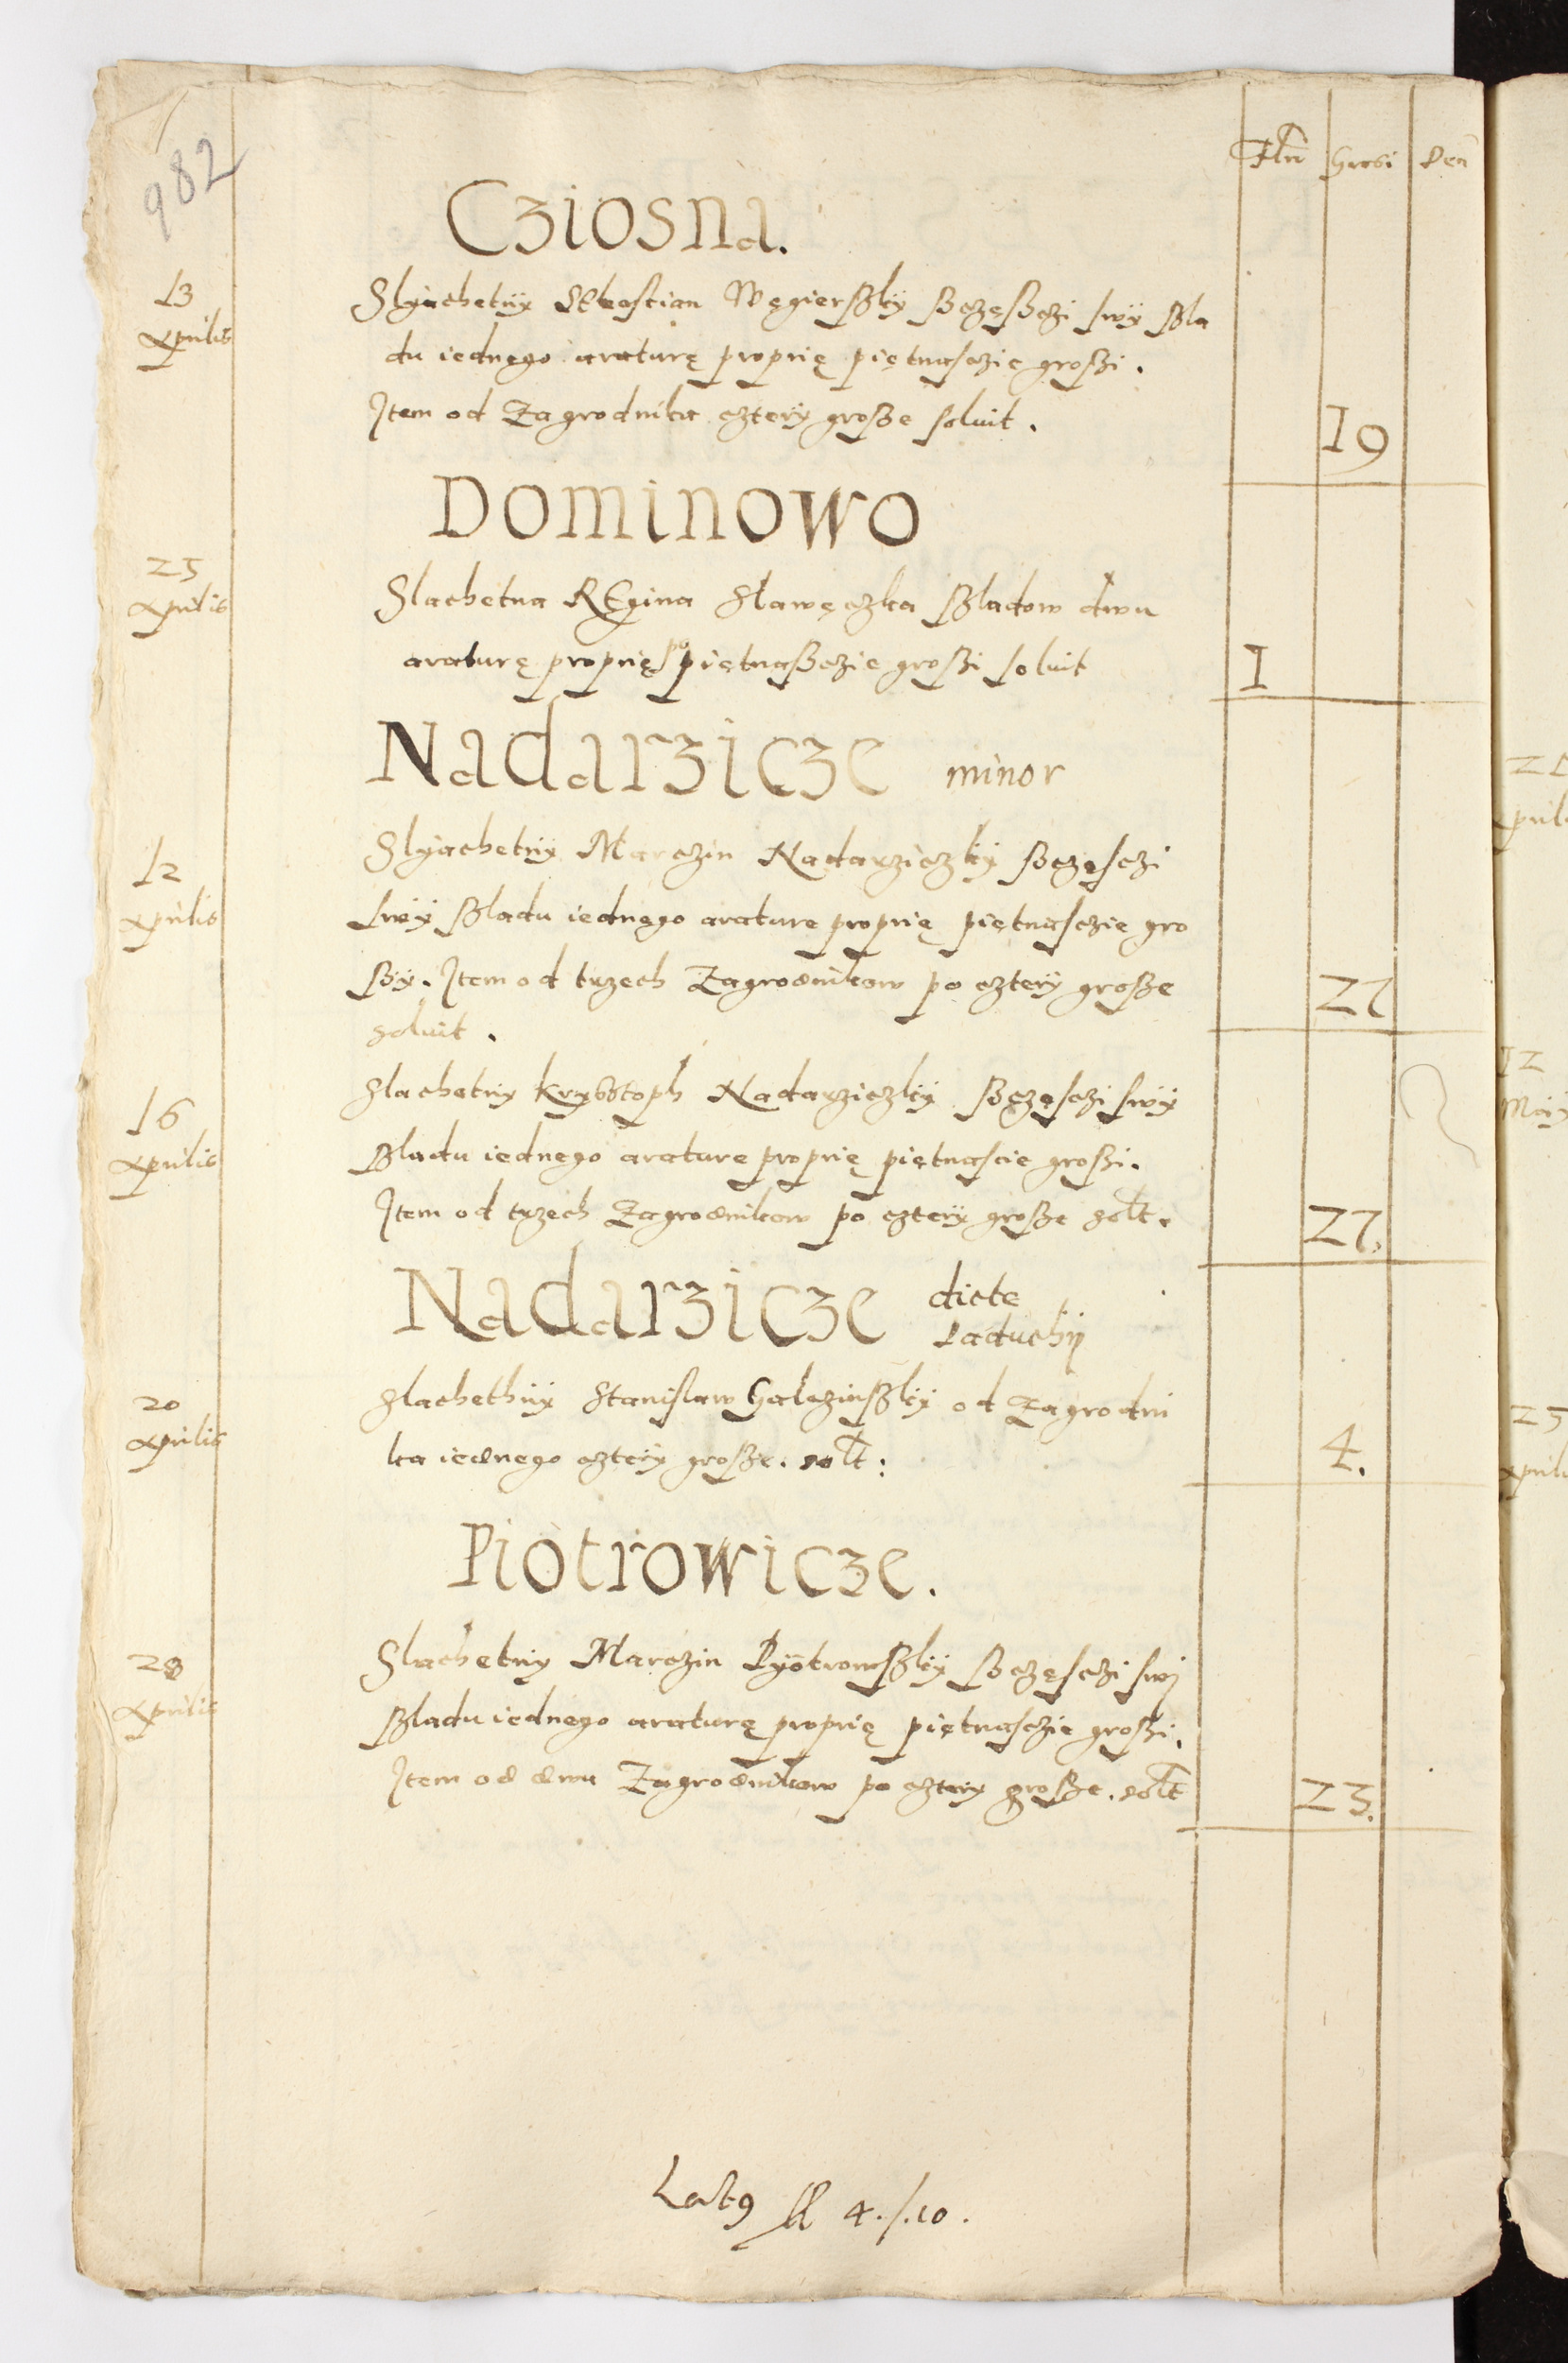 982
Flñ Grosi Den̄
Cziosna.
13 Aprilis
Slyachetnÿ Sebastian Węgierßkÿ ßczęßczi swÿ ßla
du iednego araturę proprię piętnasczie großi.
Item od Zagrodnika czterÿ große soluit.
19
Dominowo
25 Aprilis
Slachetna REgina Sławęczka ßladow dwu
araturę proprię po piętnaßczie großi soluit
1
Nadarzicze minor
12 Aprilis
Slyachetnÿ Marczin Nadarziczkÿ ßczęsczi
swÿ ßladu iednego arature proprię piętnasczie gro
ßÿ. Item od trzech Zagrodnikow po cztery große
soluit.
27
16 Aprilis
Slachetnÿ krÿsstoph Nadarziczkÿ ßczęsczi swÿ
ßladu iednego arature proprię piętnascie großi.
Item od trzech Zagrodnikow po cztery große solt.
27.
Nadarzicze dicte
Laduchÿ
20 Aprilis
Slachethnÿ Stanislaw Galezinßkÿ od Zagrodni
ka iednego cztery große. solt:
4.
Piotrowicze.
28 Aprilis
Slachetnÿ Marczin Pÿotrowßkÿ ßczęsczi swÿ
ßladu iednego araturę proprię piętnasczie großi.
Item od dwu Zagrodnikow po cztery große. solt
23.
Lat9 fl 4./.10.
21
12
Maÿ
25